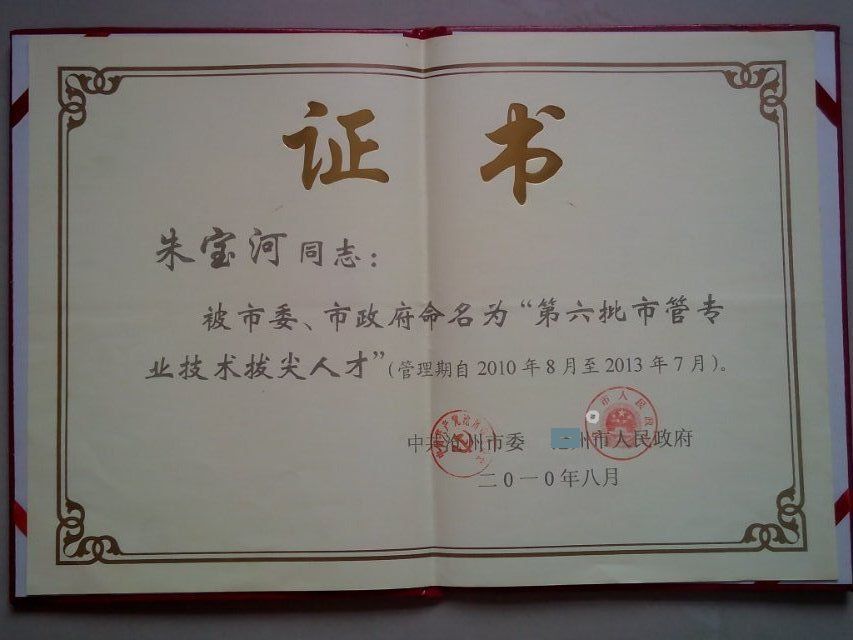 证书
朱宝河同志：
被市委、市政府命名为“第六批市管专
业技术拔尖人才”（管理期自2010年8月至2013年7月）。
中共沧州市委 州市人民政府
二0一0年八月